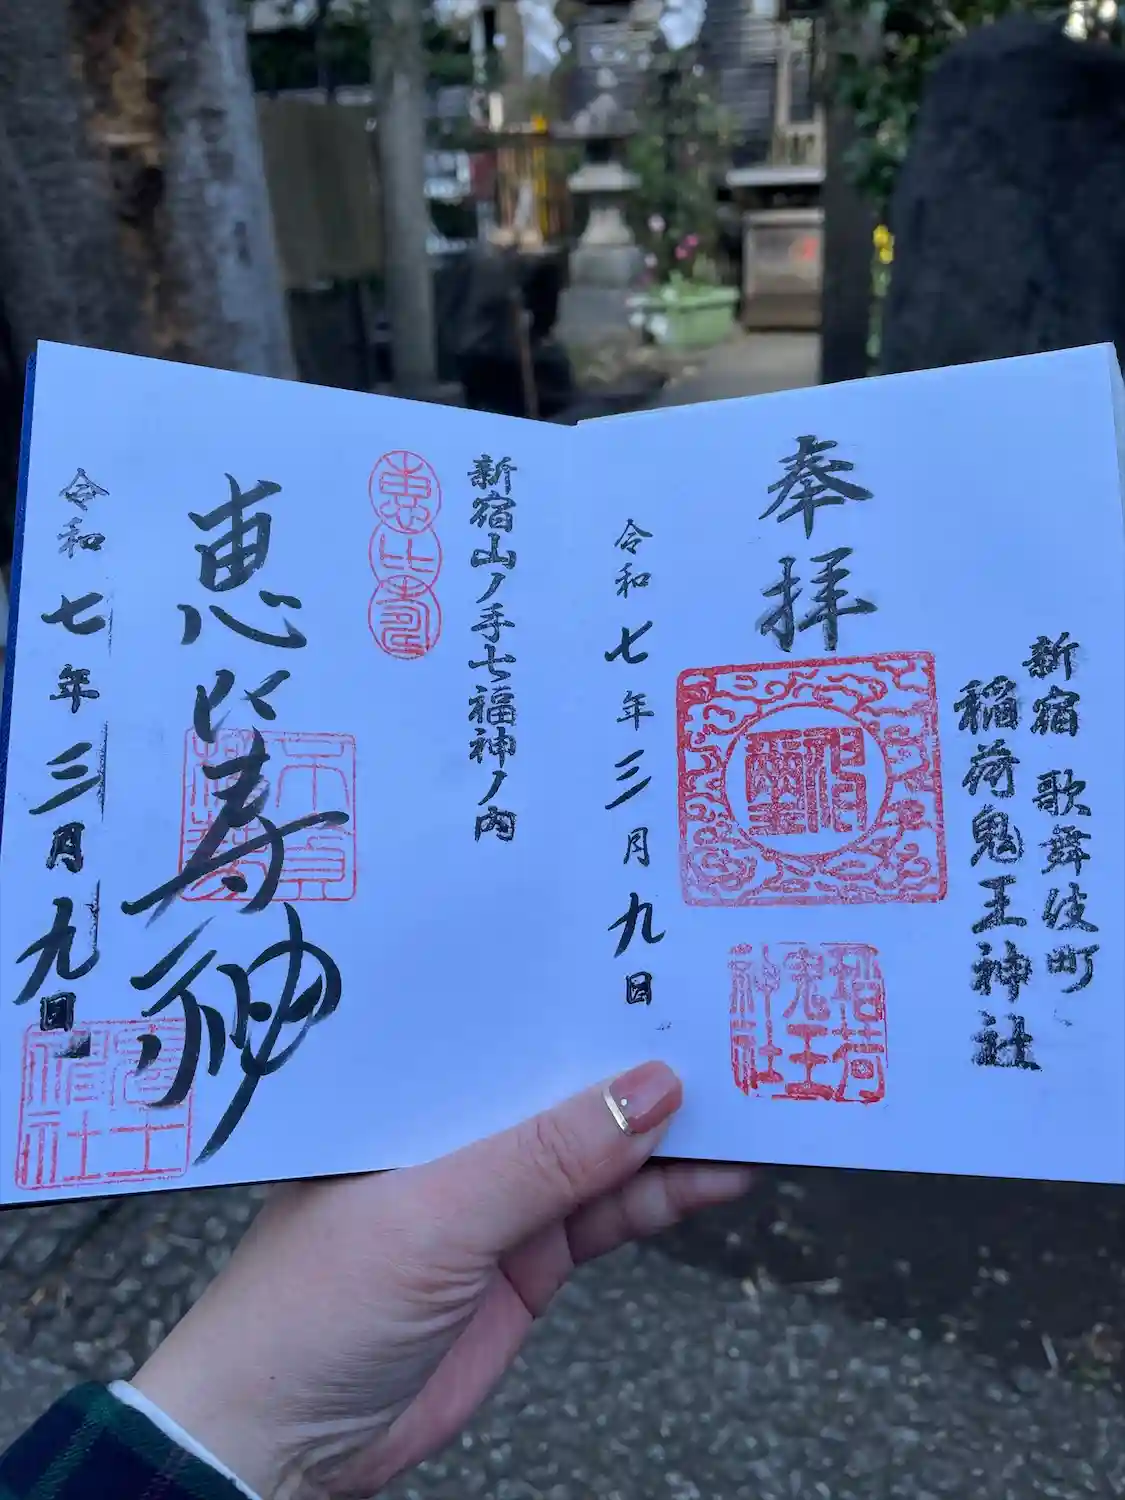 奉拝
新宿 歌舞伎町
稲荷鬼王神社
稲荷
鬼王
神社
令和七年三月九日
新宿山ノ手七福神ノ内
恵比寿
恵比寿神
令和七年三月九日